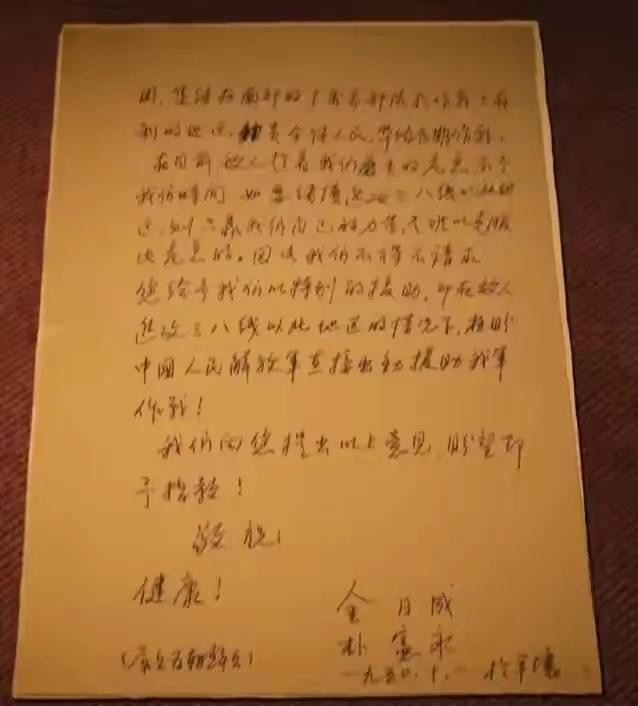 团，集结在南部的部队于作战上有
利的地区，动员全体人民，准备长期作战。
在目前敌人趁着我们严重的危急，不予
我们时间，如要继续进攻三八线以北地
区，则只靠我们自己的力量，是难以克服
此危急的。因此我们不得不请求
您给予我们以特别的援助，即在敌人
进攻三八线以北地区的情况下，极盼
中国人民解放军直接出动援助我军
作战！
我们向您提出以上意见，盼望即
予指教！
敬祝！
健康！
金日成
朴宪永
一九五〇.十.一 于平壤
（原文为朝鲜文）